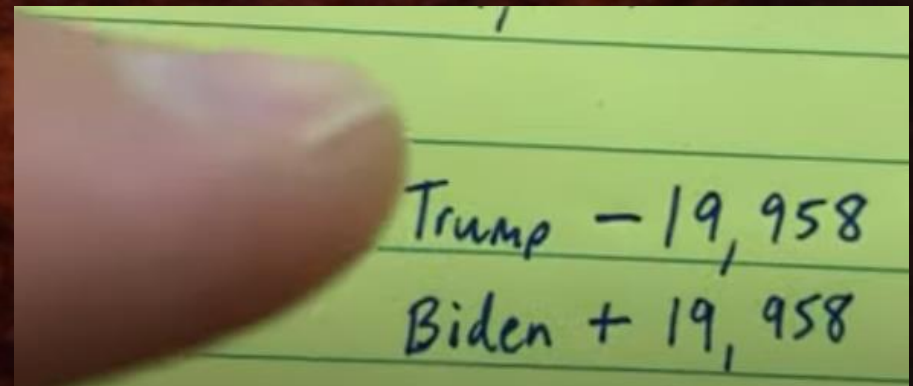 Trump - 19,958
Biden + 19,958